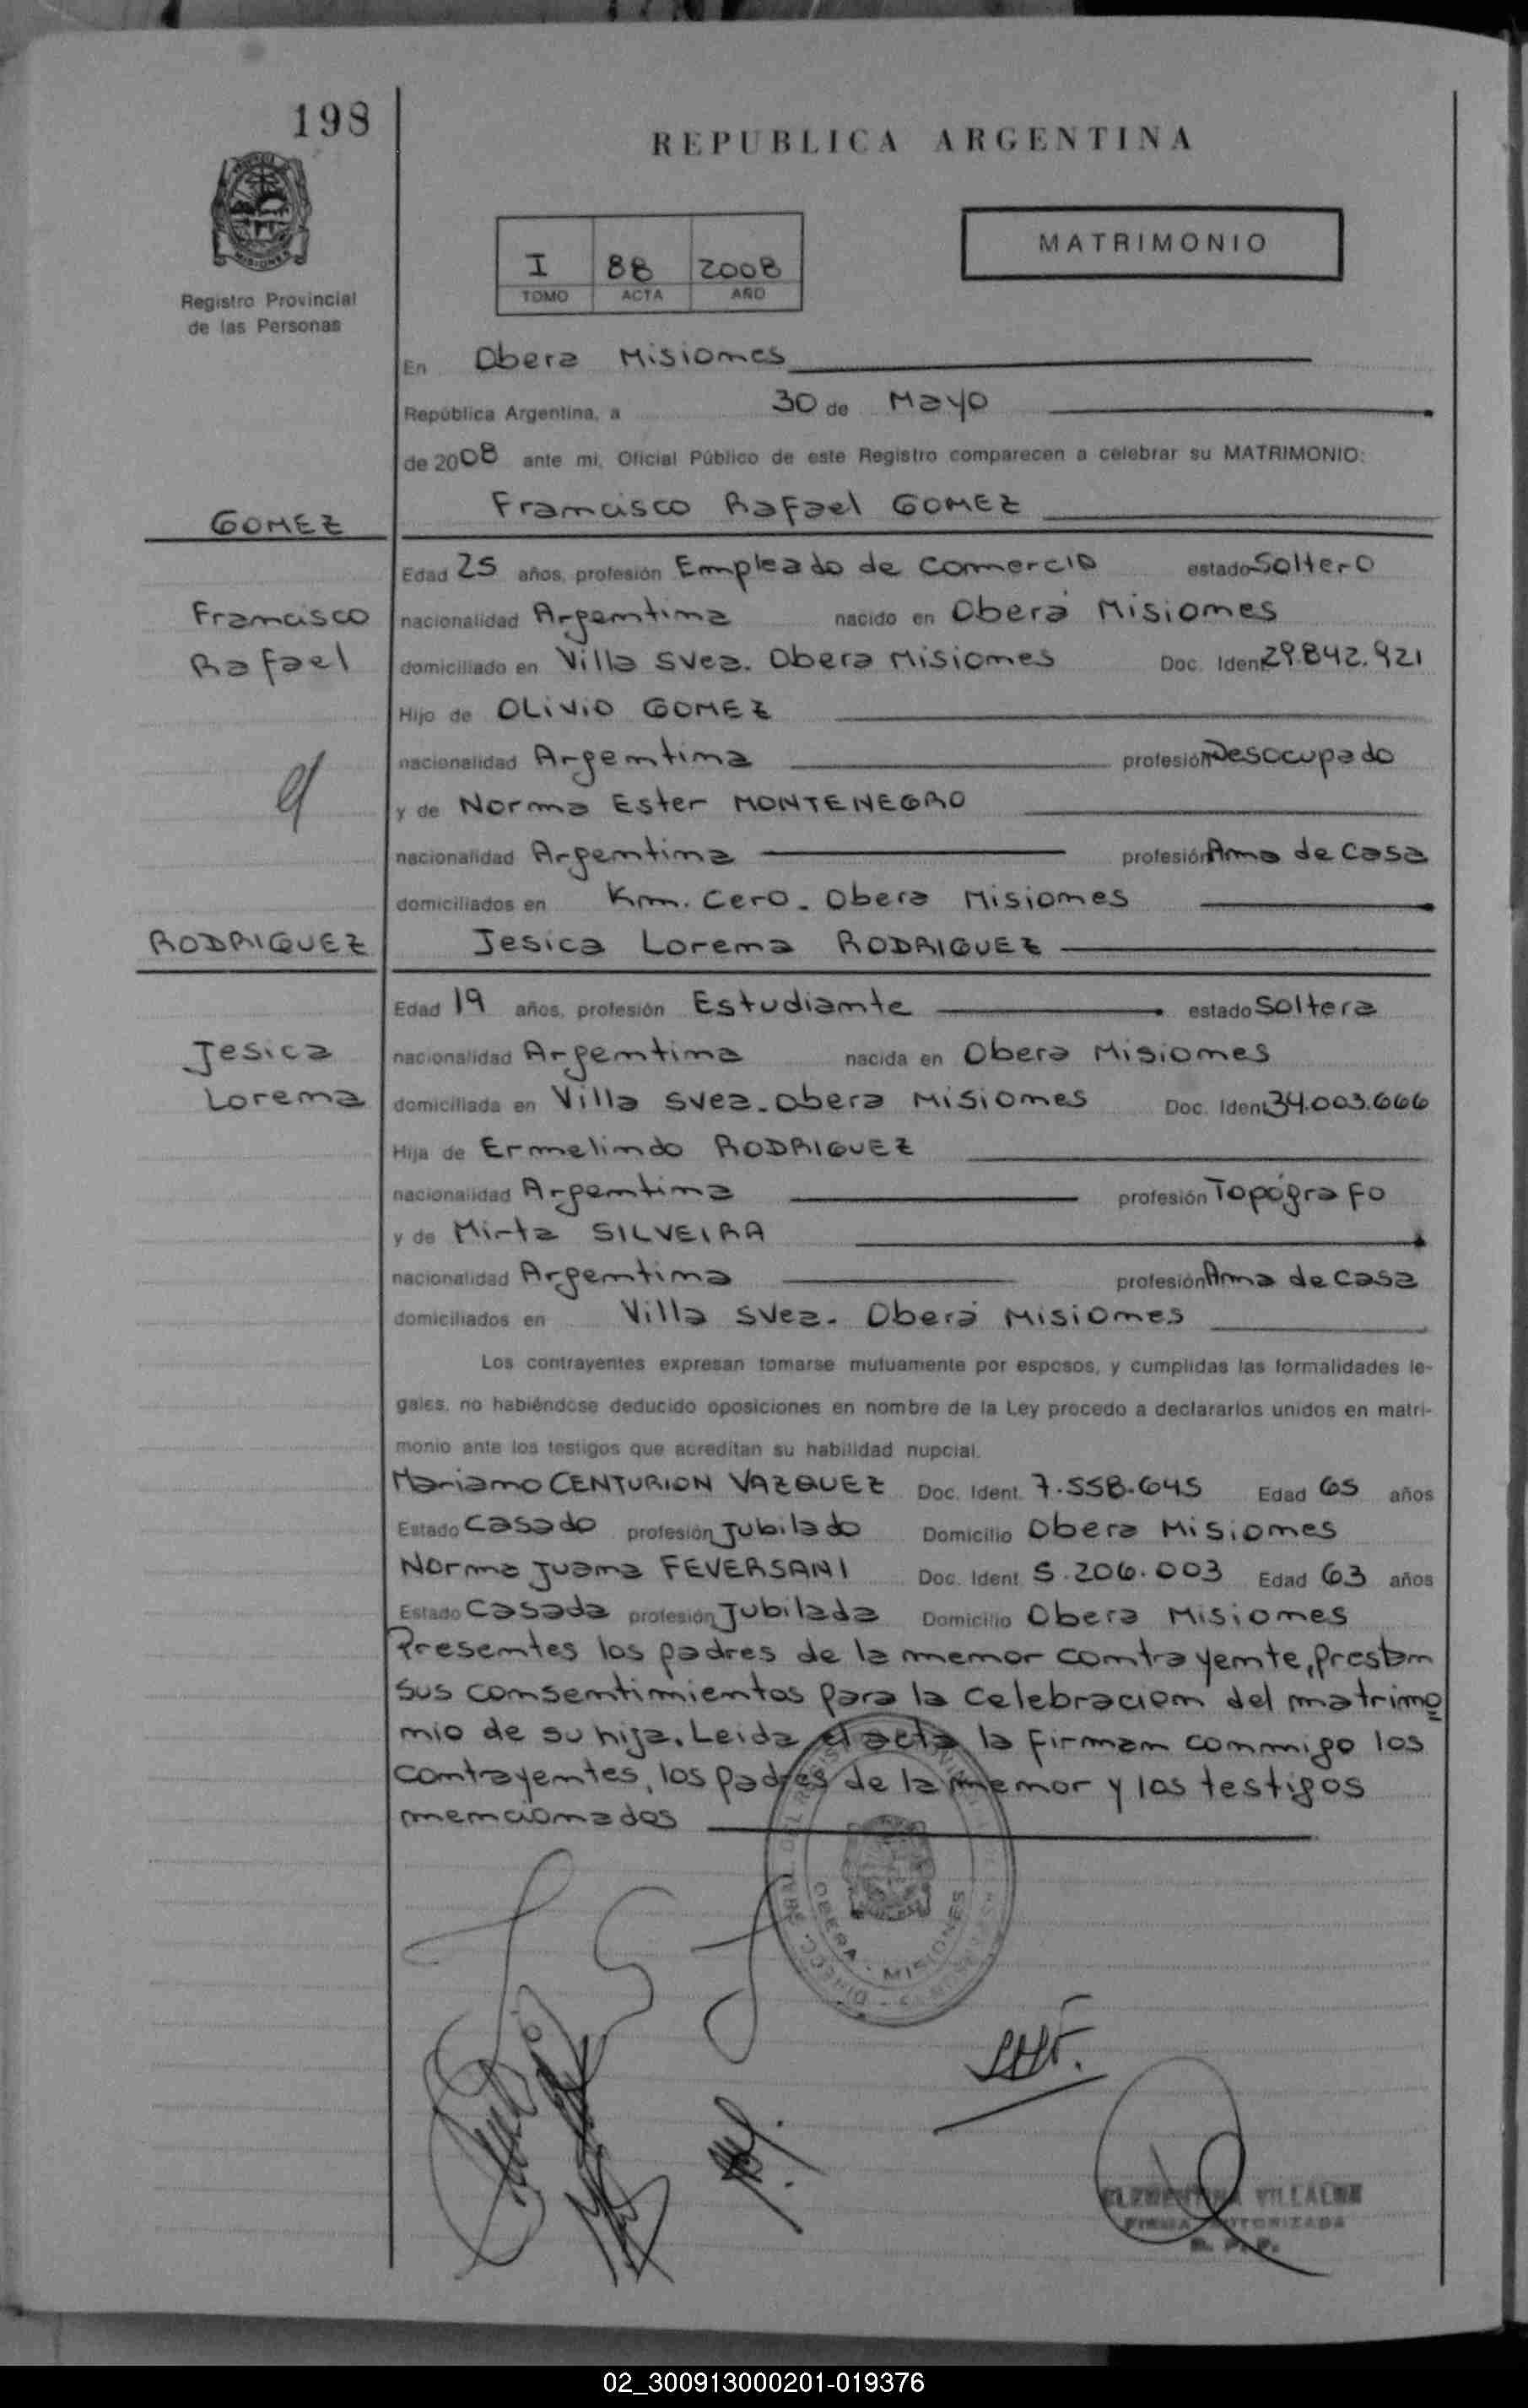 198
REPUBLICA ARGENTINA
MATRIMONIO
I 88 2008
TOMO ACTA AÑO
Registro Provincial
de las Personas
En Obera Misiones
República Argentina, a 30 de Mayo
de 2008 ante mi, Oficial Público de este Registro comparecen a celebrar su MATRIMONIO:
GOMEZ
Francisco Rafael GOMEZ
Edad 25 años, profesión Empleado de Comercio estado Soltero
Francisco
nacionalidad Argentina nacido en Oberá Misiones
Rafael
domiciliado en Villa Svea. Obera Misiones Doc. Ident. 29.842.921
Hijo de OLIVIO GOMEZ
nacionalidad Argentina profesión Desocupado
y
y de Norma Ester MONTENEGRO
nacionalidad Argentina profesión Ama de Casa
domiciliados en Km. Cero. Obera Misiones
RODRIGUEZ
Jesica Lorena RODRIGUEZ
Edad 19 años, profesión Estudiante estado Soltera
Jesica
nacionalidad Argentina nacida en Obera Misiones
Lorena
domiciliada en Villa Svea. Obera Misiones Doc. Ident. 34.003.666
Hija de Ermelindo RODRIGUEZ
nacionalidad Argentina profesión Topógrafo
y de Mirta SILVEIRA
nacionalidad Argentina profesión Ama de Casa
domiciliados en Villa Svea. Oberá Misiones
Los contrayentes expresan tomarse mutuamente por esposos, y cumplidas las formalidades le-
gales, no habiéndose deducido oposiciones en nombre de la Ley procedo a declararlos unidos en matri-
monio ante los testigos que acreditan su habilidad nupcial.
Mariano CENTURION VAZQUEZ Doc. Ident. 7.558.645 Edad 65 años
Estado Casado profesión Jubilado Domicilio Obera Misiones
Norma Juana FEVERSANI Doc. Ident. 5.206.003 Edad 63 años
Estado Casada profesión Jubilada Domicilio Obera Misiones
Presentes los padres de la menor contrayente, prestan
sus consentimientos para la celebracion del matrimo
nio de su hija. Leida el acta la firman conmigo los
contrayentes, los padres de la menor y los testigos
mencionados
OBERA - MISIONES
CLEMENTINA VILLALBA
FIRMA AUTORIZADA
02_300913000201-019376